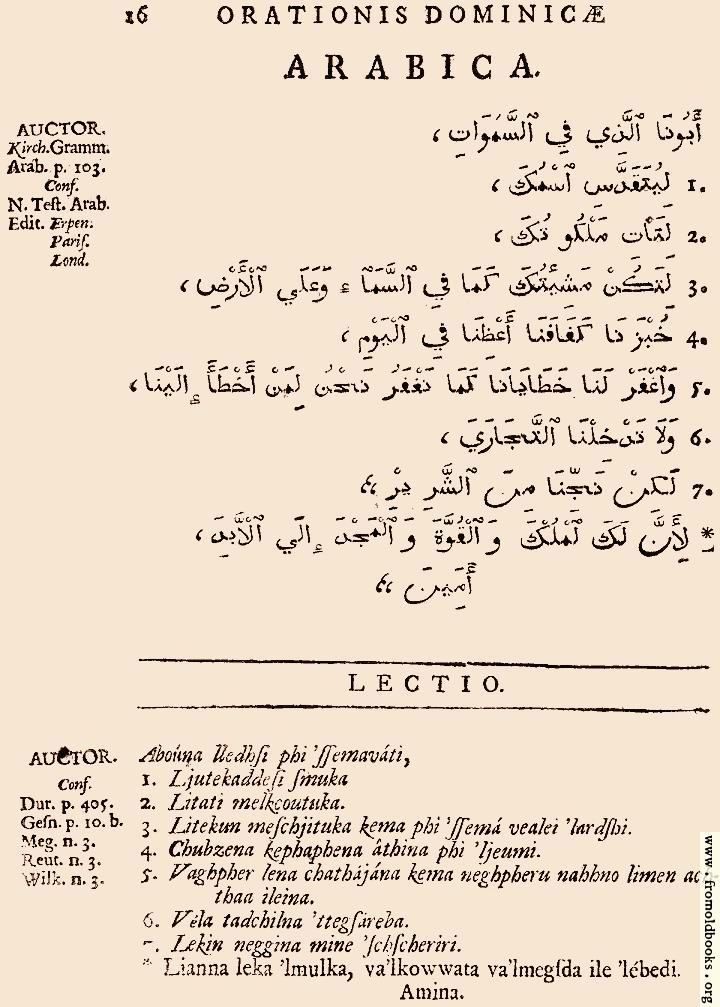 16 ORATIONIS DOMINICÆ
ARABICA.
AUCTOR.
Kirch. Gramm.
Arab. p. 103.
Conf.
N. Teſt. Arab.
Edit. Erpen.
Pariſ.
Lond.
أَبُونَا ٱلَّذِي فِي ٱلسَّمَوَاتِ ،
1. لِيَتَقَدَّس ٱسْمُكَ ،
2. لِتَأت مَلْكُو تُكَ ،
3. لِتَكُنْ مَشِيئَتُكَ كَمَا فِي ٱلسَّمَآ ء وَعَلَي ٱلْأَرْضِ ،
4. خُبْزَ نَا كَفَافَنَا أَعْطِنَا فِي ٱلْيَوْمِ ،
5. وَٱغْفِرْ لَنَا خَطَايَانَا كَمَا نَغْفِرُ نَحْنُ لِمَنْ أَخْطَأَ إِلَيْنَا ،
6. وَلَا تَدْخِلْنَا ٱلتَّجَارِيَ ،
7. لَكِنْ نَجِّنَا مِنَ ٱلشَّرِ يرْ ،،
* لِأَنَّ لَكَ ٱلْمُلْكَ وَ ٱلْقُوَّةَ وَ ٱلْمَجْدَ إِلَي ٱلْأَبَدِ ،
أَمِينَ ،،
LECTIO.
AUCTOR.
Conf.
Dur. p. 405.
Geſn. p. 10. b.
Meg. n. 3.
Reut. n. 3.
Wilk. n. 3.
Aboúna lledhſi phi 'ſſemaváti,
1. Ljutekaddeſi ſmuka
2. Litati melkcoutuka.
3. Litekun meſchjituka kema phi 'ſſemá vealei 'lardſhi.
4. Chubzena kephaphena âthina phi 'ljeumi.
5. Vaghpher lena chathájána kema neghpheru nahhno limen ac
thaa ileina.
6. Véla tadchilna 'ttegſáreba.
7. Lekin neggina mine 'ſchſcheriri.
* Lianna leka 'lmulka, va'lkowwata va'lmegſda ile 'lébedi.
Amina.
www.fromoldbooks.org